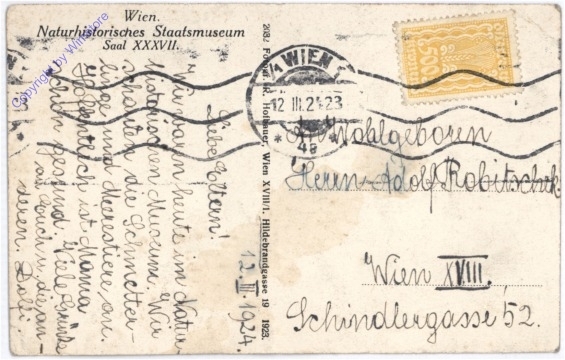 Wien.
Naturhistorisches Staatsmuseum
Saal XXXVII.
Copyright by Winstore
Liebe Eltern!
Wir waren heute im Natur-
historischen Museum. Wir
schauten die Schmetter-
linge und Meerestiere an.
Hoffentlich ist Mama
wohl gesund. Viele Grüsse
an Euch u. die an-
deren. Dolbi.
12. III. 1924.
Hofbauer, Wien XVIII/1, Hildebrandgasse 19 1923.
WIEN
12. III. 24 23
500
Wohlgeboren
Herrn Adolf Robitschek
Wien XVIII.
Schindlergasse 52.